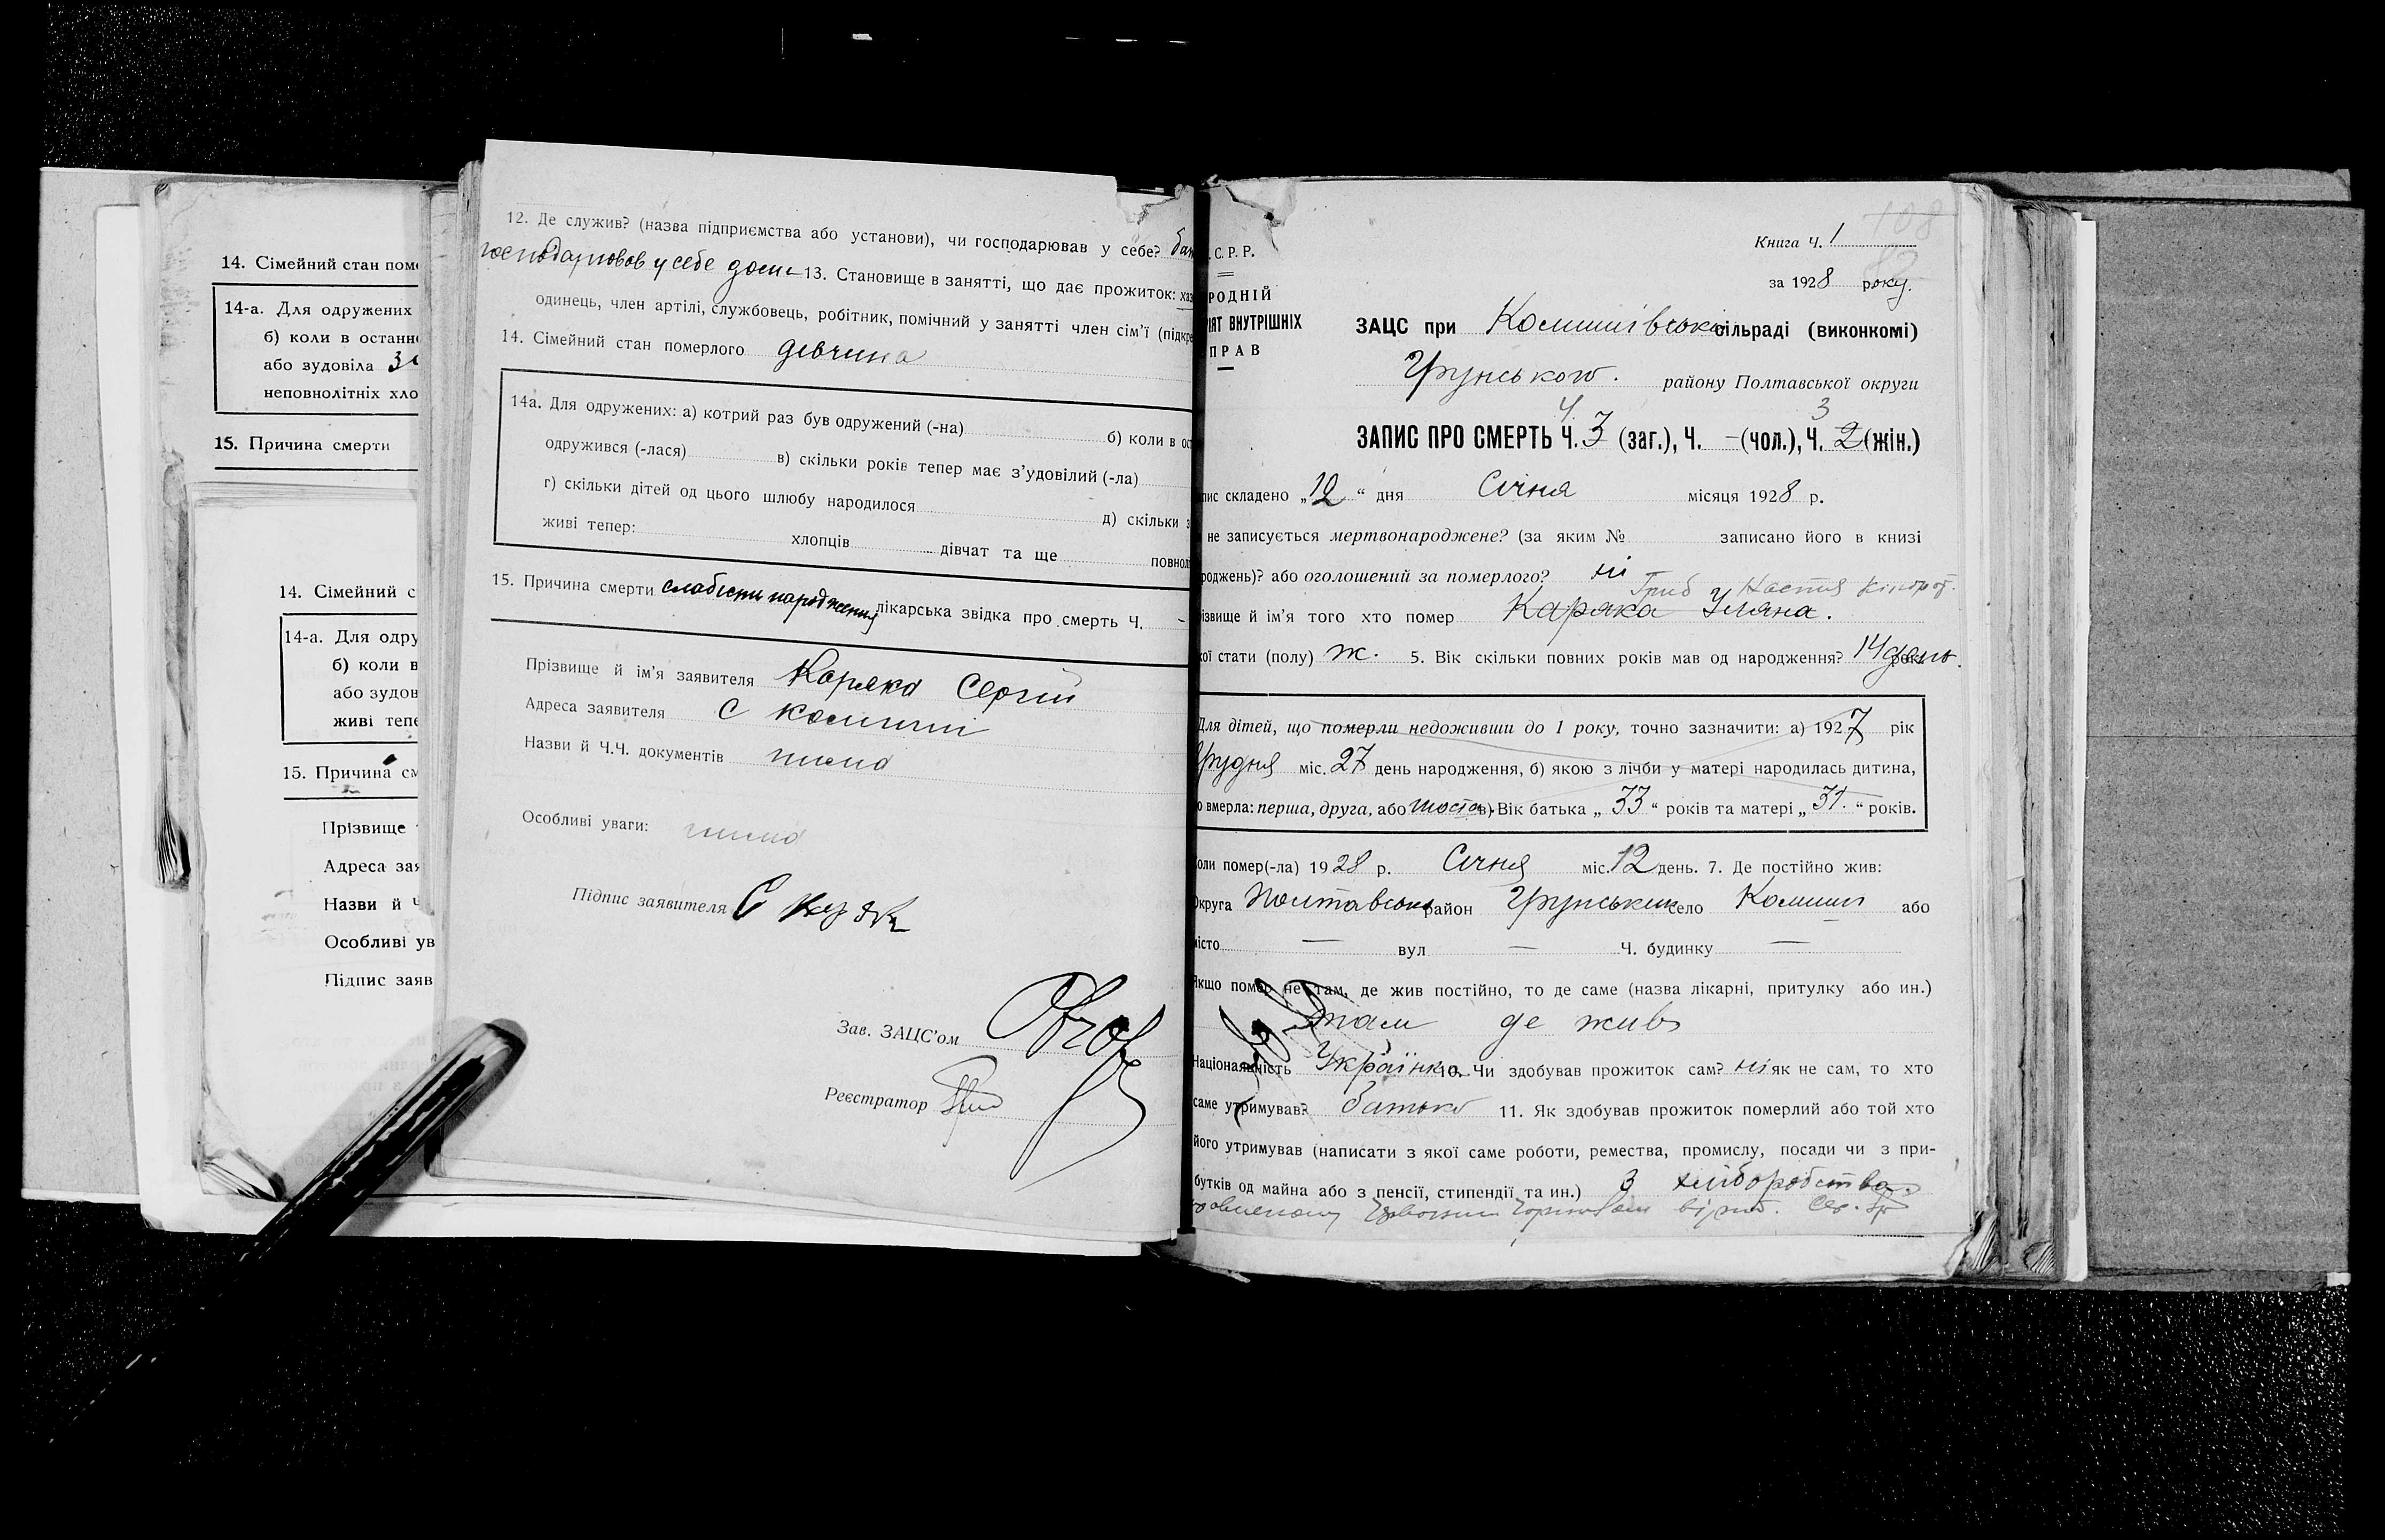 14. Сімейний стан пом
14-а. Для одружених
б) коли в останн
або зудовіла
неповнолітніх хло
15. Причина смерти
14. Сімейний с
14-а. Для одру
б) коли в
або зудов
живі тепе
15. Причина см
Прізвище
Адреса зая
Назви й Ч
Особливі ув
Підпис заяв
12. Де служив? (назва підприємства або установи), чи господарював у себе? бат
господарював у себе дома 13. Становище в занятті, що дає прожиток: хаз
одинець, член артілі, службовець, робітник, помічний у занятті член сім'ї (підкре
14. Сімейний стан померлого девчина
14а. Для одружених: а) котрий раз був одружений (-на) б) коли в ос
одружився (-лася) в) скільки років тепер має з'удовілий (-ла)
г) скільки дітей од цього шлюбу народилося д) скільки з
живі тепер: хлопців дівчат та ще повнол
15. Причина смерти слабість народження лікарська звідка про смерть Ч. -
Прізвище й ім'я заявителя Каряка Сергій
Адреса заявителя С Комиші
Назви й Ч.Ч. документів нема
Особливі уваги: нема
Підпис заявителя С
Зав. ЗАЦС'ом
Реєстратор
108
Книга Ч. 1
за 1928 року.
.С.Р.Р.
РОДНІЙ
ІЯТ ВНУТРІШНІХ
ПРАВ
ЗАЦС при Комишівські сільраді (виконкомі)
Грунського. району Полтавської округи
4. 3
ЗАПИС ПРО СМЕРТЬ Ч. 3 (заг.), Ч. — (чол.), Ч. 2 (жін.)
пис складено „12“ дня Січня місяця 1928 р.
не записується мертвонароджене? (за яким № записано його в книзі
роджень)? або оголошений за померлого? ні
Гриб Настя
ізвище й ім'я того хто помер Каряка Уляна.
кої стати (полу) ж. 5. Вік скільки повних років мав од народження? 14 день.
Для дітей, що померли недоживши до 1 року, точно зазначити: а) 1927 рік
Грудня міс. 27 день народження, б) якою з лічби у матері народилась дитина,
о вмерла: перша, друга, або шоста в) Вік батька „33“ років та матері „31.“ років.
Коли помер(-ла) 1928 р. Січня міс. 12 день. 7. Де постійно жив:
Округа Полтавська район Грунський село Комиші або
місто — вул — Ч. будинку —
Якщо помер не там, де жив постійно, то де саме (назва лікарні, притулку або ин.)
там де жив
Національність Українка 10. Чи здобував прожиток сам? ні як не сам, то хто
саме утримував? батько 11. Як здобував прожиток померлий або той хто
його утримував (написати з якої саме роботи, ремества, промислу, посади чи з при-
бутків од майна або з пенсії, стипендії та ин.) З хліборобства.